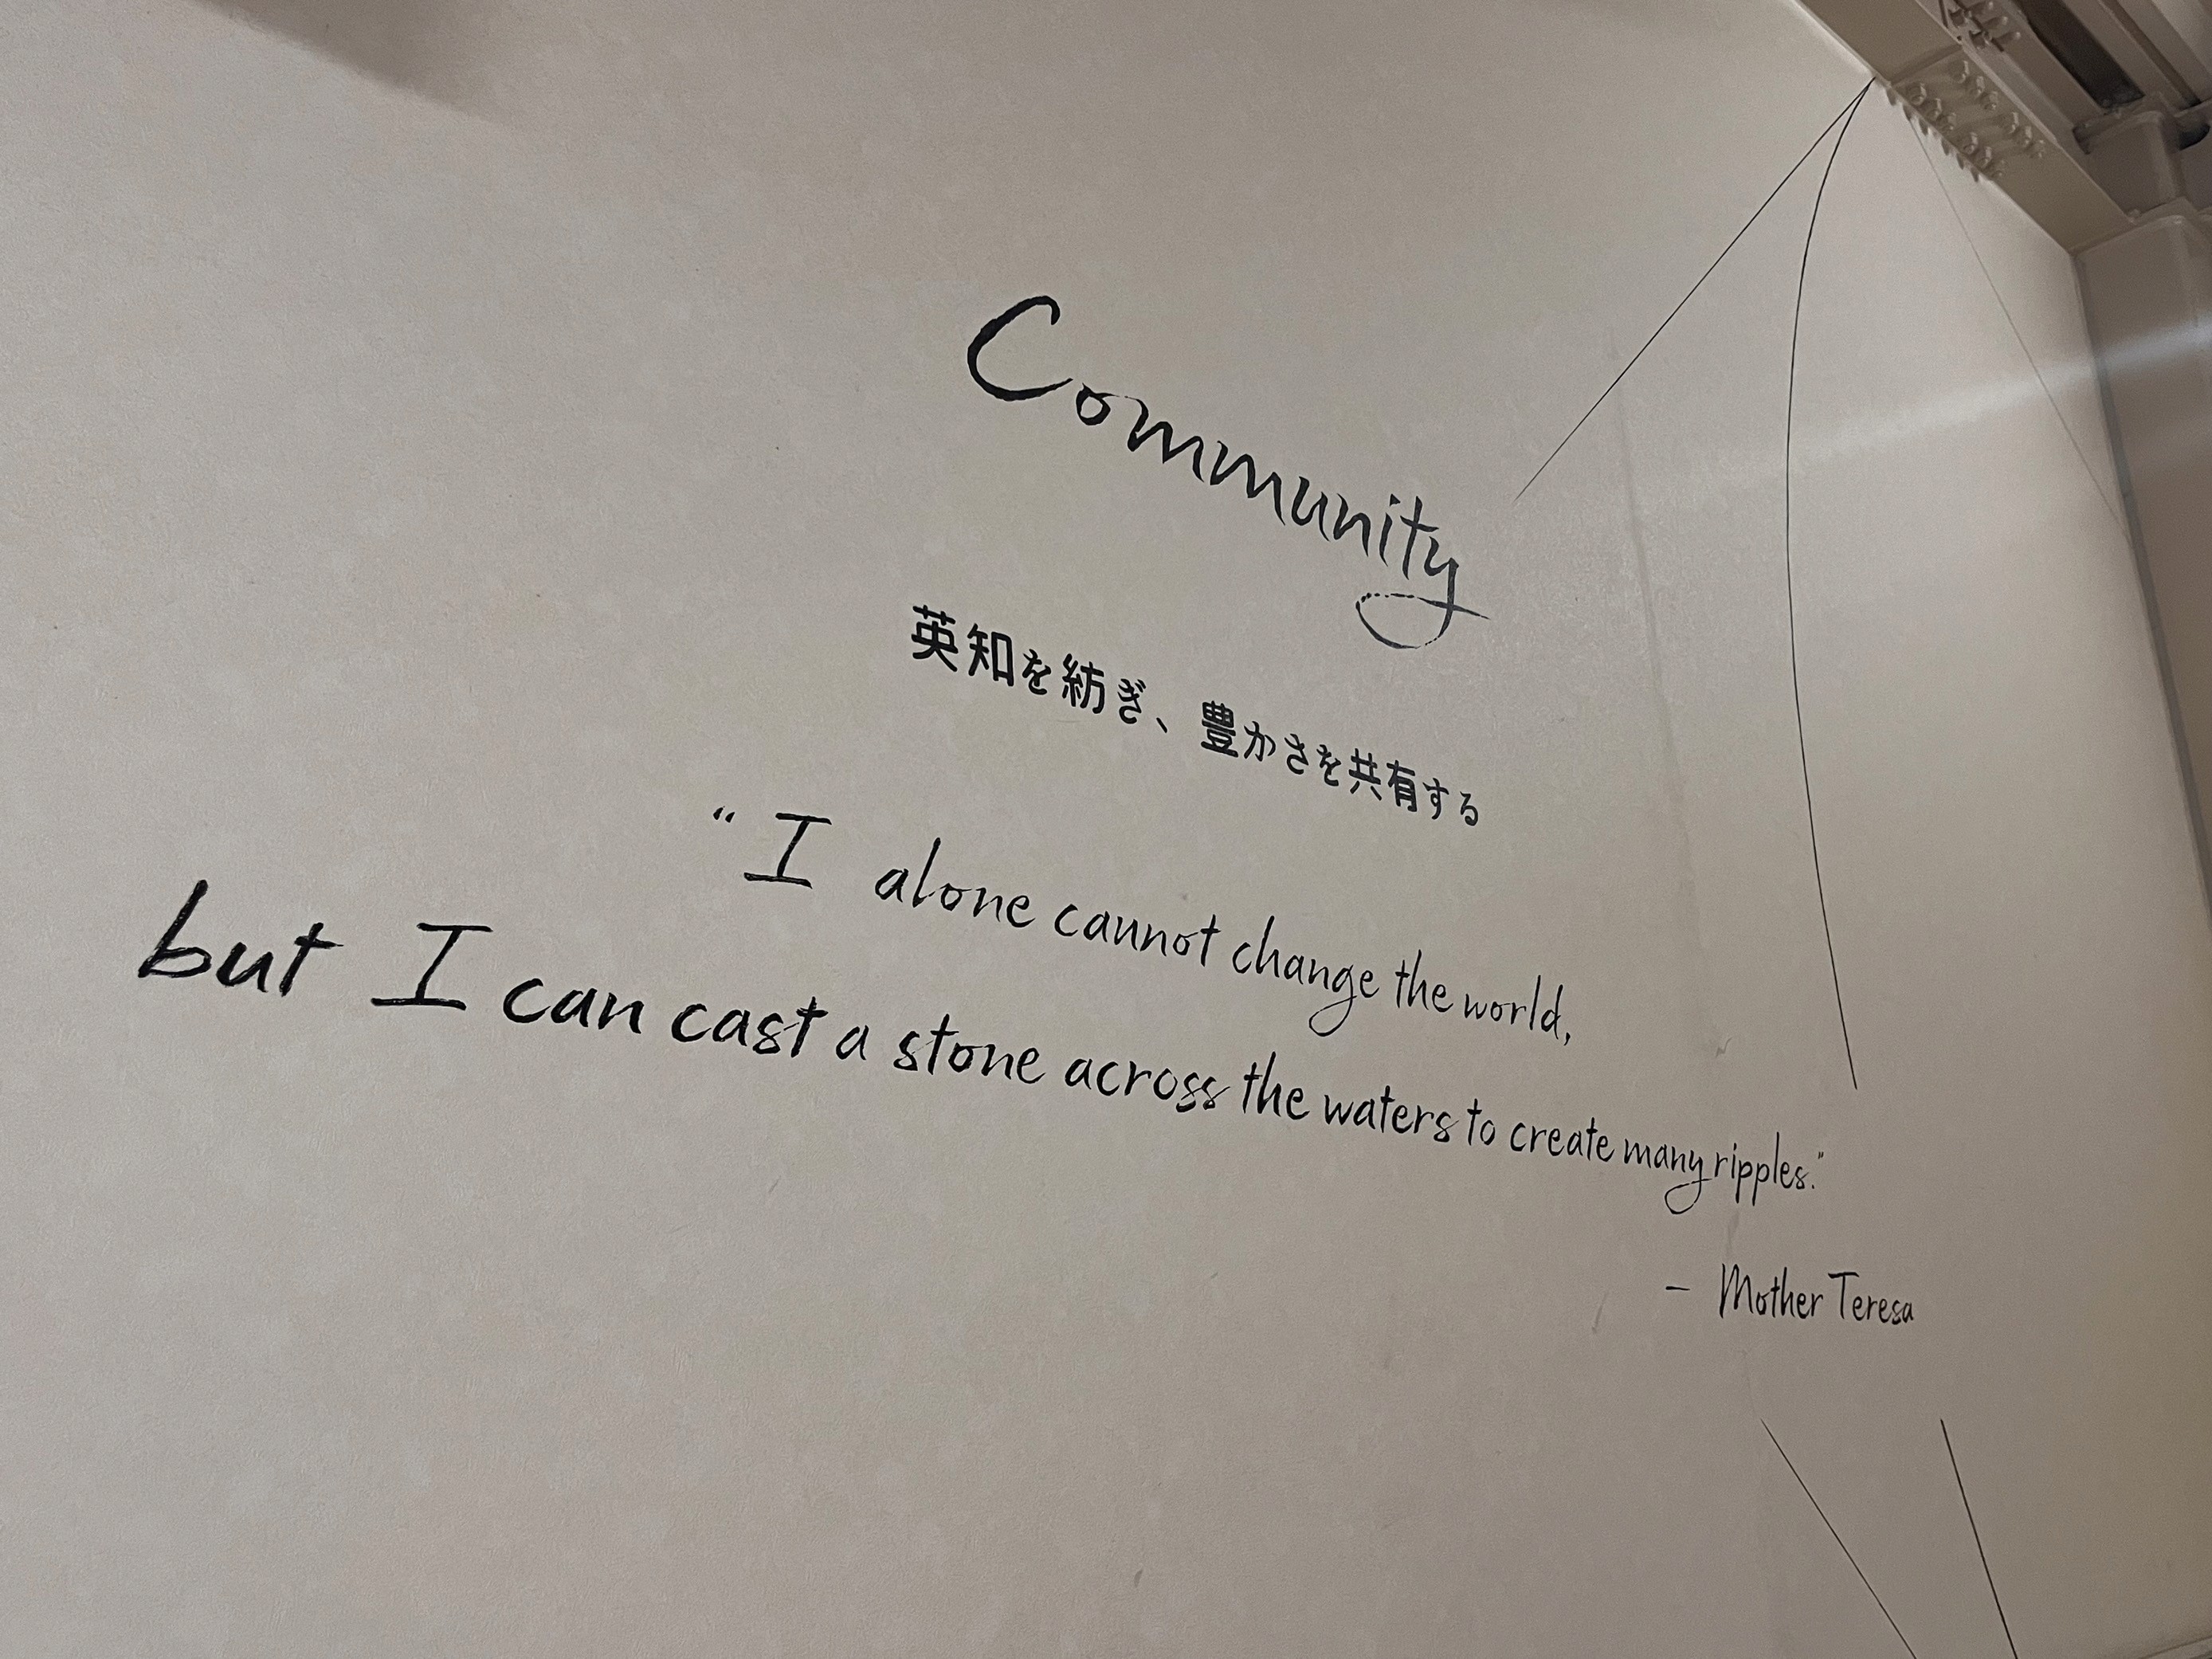 Community
英知を紡ぎ、豊かさを共有する
“I alone cannot change the world,
but I can cast a stone across the waters to create many ripples.”
– Mother Teresa